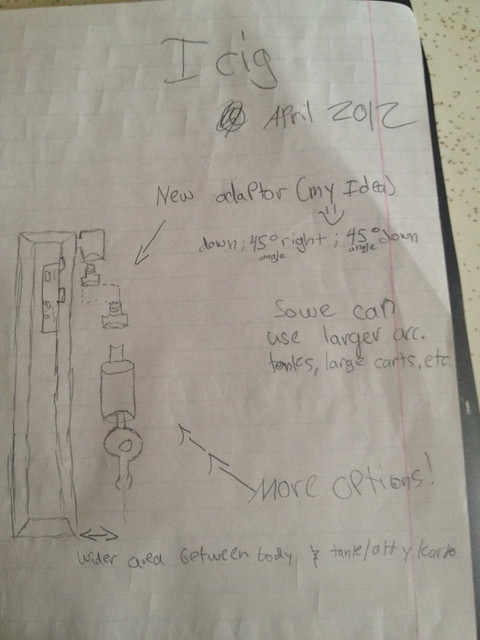 I cig
April 2012
New adaptor (my Idea)
down; 45° right; 45° down
angle angle
So we can
use larger acc.
tanks, large carts, etc.
More options!
wider area between body, & tank/atty/carto